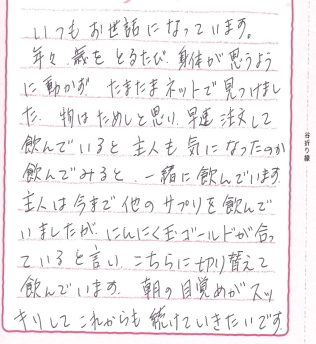 いつもお世話になっています。
年々、歳をとるたび、身体が思うよう
に動かず、たまたまネットで見つけまし
た。物はためしと思い、早速注文して
飲んでいると主人も気になったのか
飲んでみると、一緒に飲んでいます。
主人は今まで他のサプリを飲んで
いましたが、にんにく玉ゴールドが合っ
ていると言い、こちらに切り替えて
飲んでいます。朝の目覚めがスッ
キリしてこれからも続けていきたいです。
谷折り線